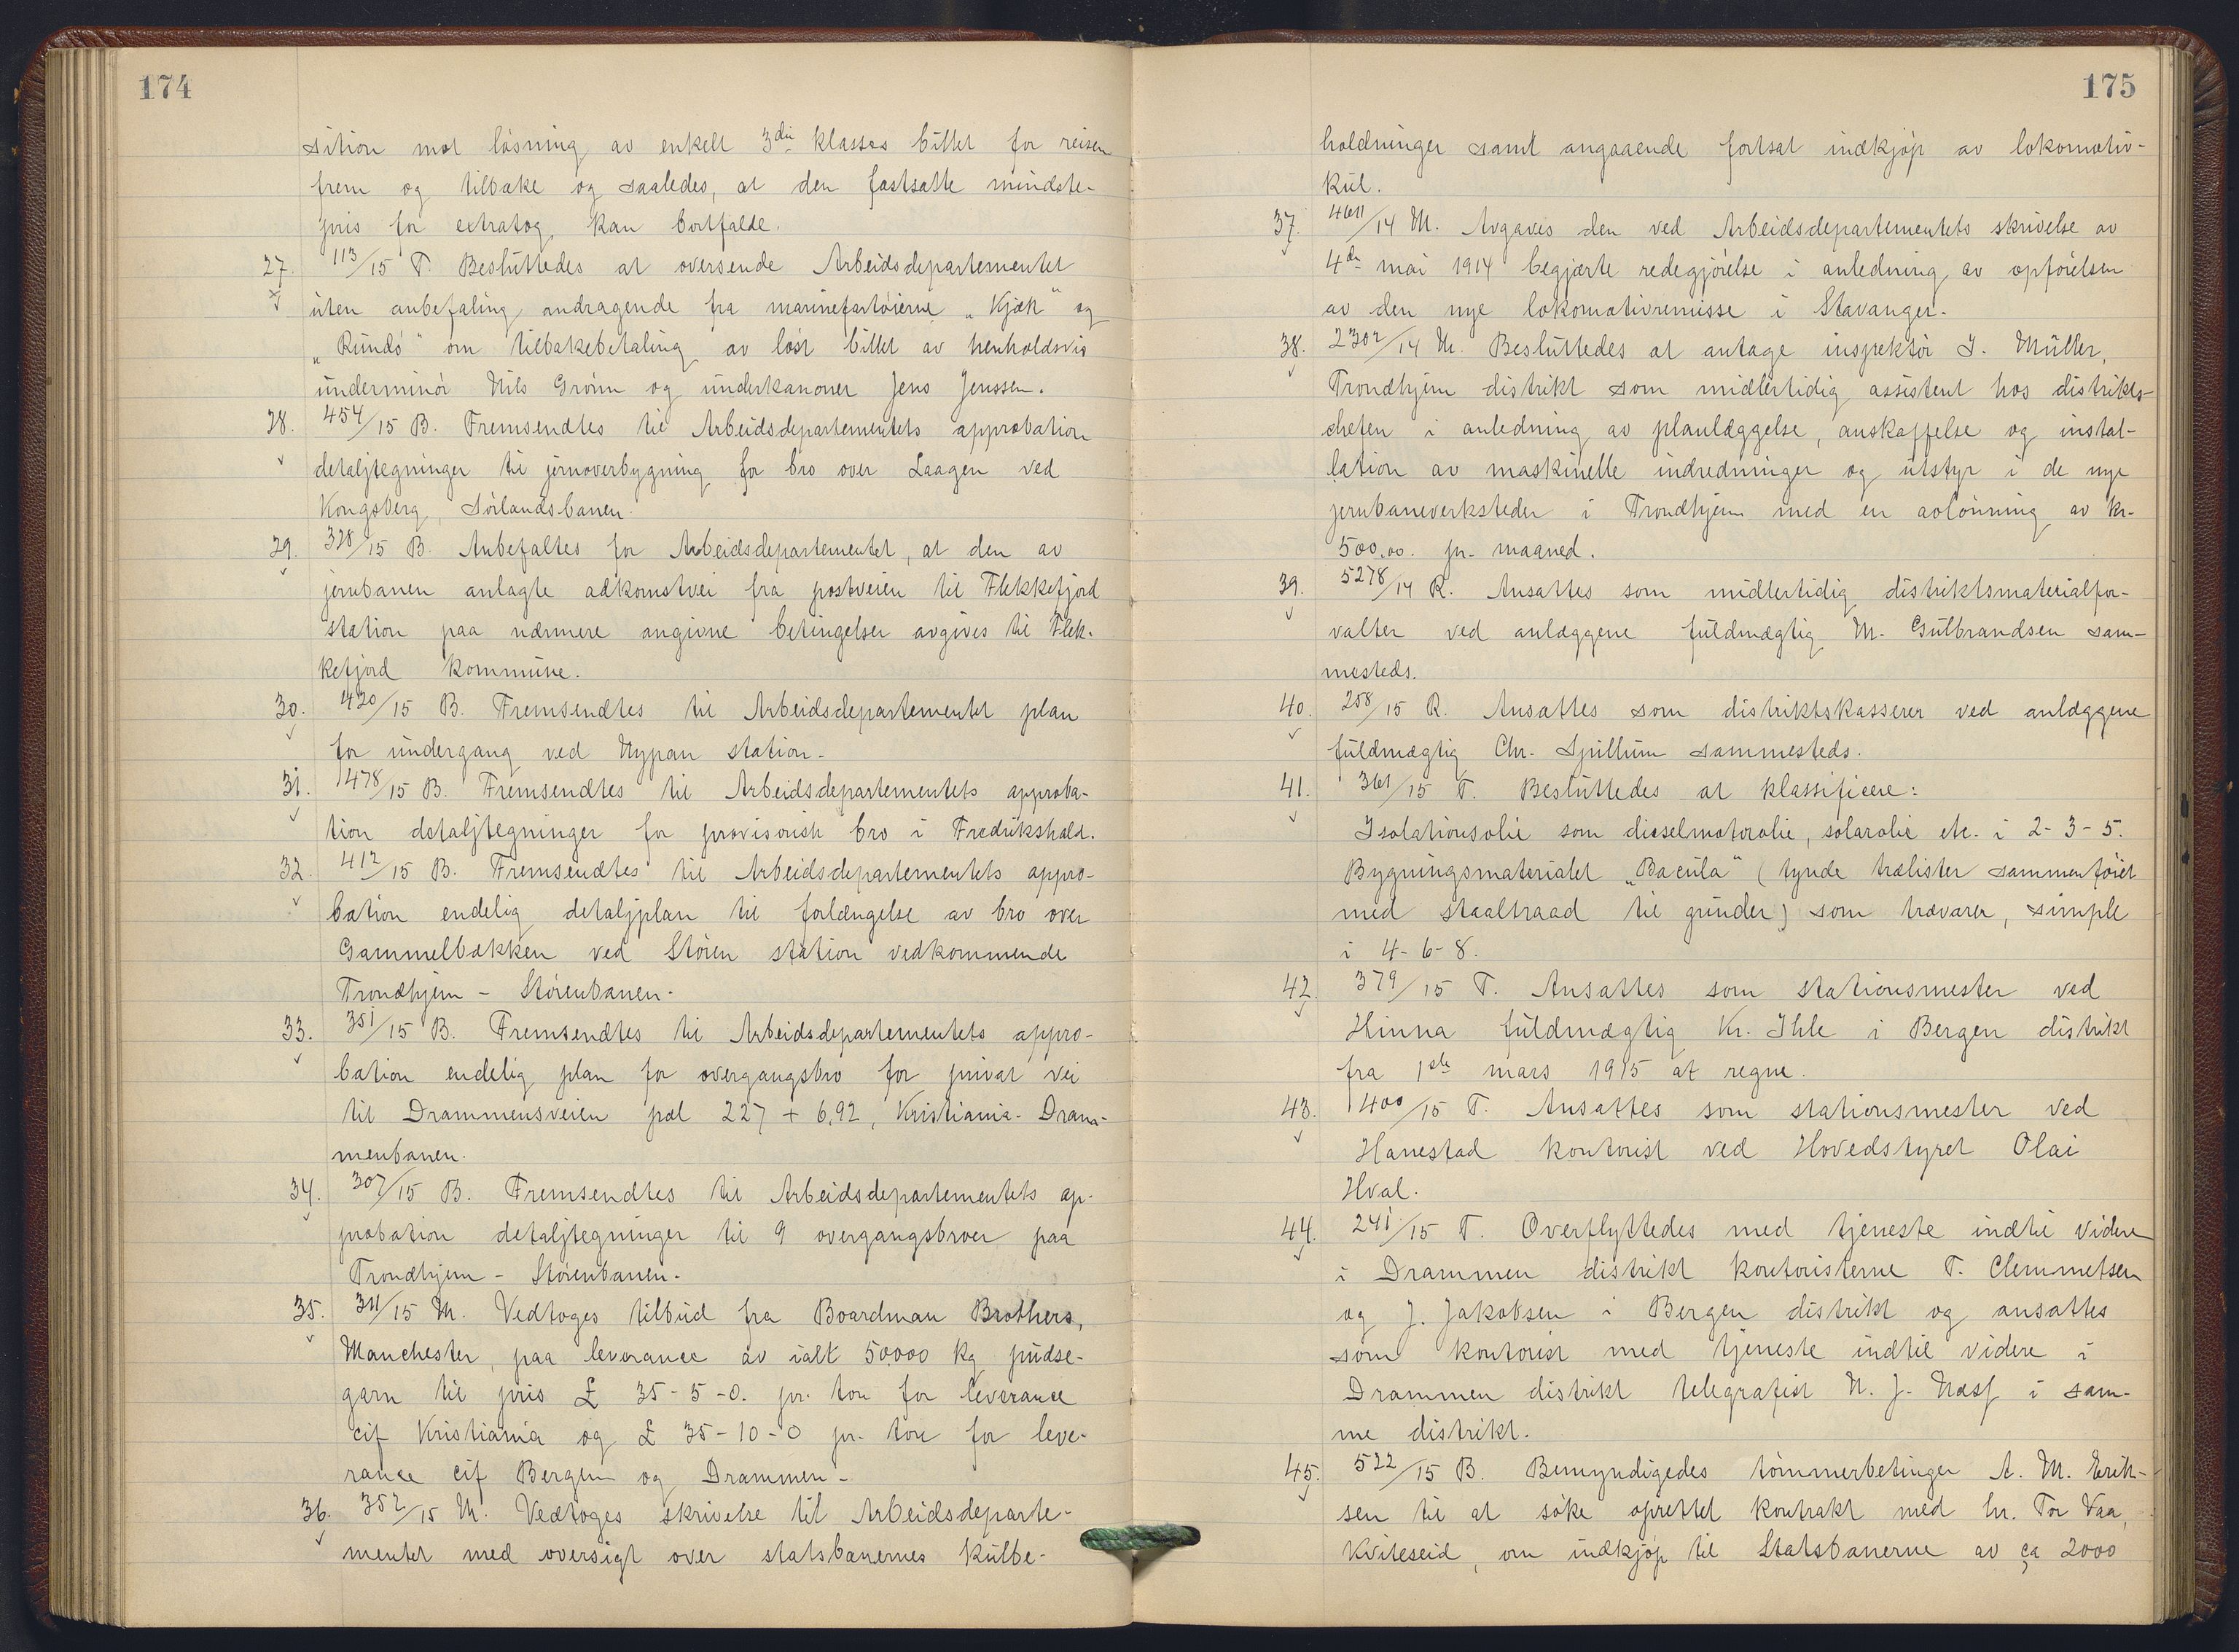 174
sition mot løsning av enkelt 3die klasses billet for reisen
frem og tilbake og saaledes, at den fastsatte mindste-
pris for extratog kan bortfalde.
27. 113/15 T. Besluttedes at oversende Arbeidsdepartementet
uten anbefaling andragende fra marinefartøierne „Kjæk" og
„Rundø" om tilbakebetaling av løst billet av henholdsvis
underminør Nils Grønn og underkanoner Jens Jenssen.
28. 454/15 B. Fremsendtes til Arbeidsdepartementets approbation
detaljtegninger til jernoverbygning for bro over Laagen ved
Kongsberg, Sørlandsbanen.
29. 328/15 B. Anbefaltes for Arbeidsdepartementet, at den av
jernbanen anlagte adkomstvei fra postveien til Flekkefjord
station paa nærmere angivne betingelser avgives til Flek-
kefjord kommune.
30. 420/15 B. Fremsendtes til Arbeidsdepartementet plan
for undergang ved Nypan station.
31. 478/15 B. Fremsendtes til Arbeidsdepartementets approba-
tion detaljtegninger for provisorisk bro i Fredrikshald.
32. 412/15 B. Fremsendtes til Arbeidsdepartementets appro-
bation endelig detaljplan til forlængelse av bro over
Gammelbækken ved Støren station vedkommende
Trondhjem - Størenbanen.
33. 351/15 B. Fremsendtes til Arbeidsdepartementets appro-
bation endelig plan for overgangsbro for privat vei
til Drammensveien pæl 227 + 6,92, Kristiania - Dram-
menbanen.
34. 307/15 B. Fremsendtes til Arbeidsdepartementets ap-
probation detaljtegninger til 9 overgangsbroer paa
Trondhjem - Størenbanen.
35. 311/15 M. Vedtoges tilbud fra Boardman Brothers,
Manchester, paa leverance av ialt 50.000 kg pudse-
garn til pris £ 35-5-0. pr. ton for leverance
cif Kristiania og £ 35-10-0 pr. ton for leve-
rance cif Bergen og Drammen.
36. 352/15 M. Vedtoges skrivelse til Arbeidsdeparte-
mentet med oversigt over statsbanernes kulbe-
175
holdninger samt angaaende fortsat indkjøp av lokomotiv-
kul.
37. 4611/14 M. Avgaves den ved Arbeidsdepartementets skrivelse av
4de mai 1914 begjærte redegjørelse i anledning av opførelsen
av den nye lokomotivremisse i Stavanger.
38. 2302/14 M. Besluttedes at antage inspektør J. Müller,
Trondhjem distrikt som midlertidig assistent hos distrikts-
chefen i anledning av planlæggelse, anskaffelse og instal-
lation av maskinelle indredninger og utstyr i de nye
jernbaneverksteder i Trondhjem med en avlønning av kr.
500.00. pr. maaned.
39. 5278/14 R. Ansattes som midlertidig distriktsmaterialfor-
valter ved anlæggene fuldmægtig M. Gulbrandsen sam-
mesteds.
40. 258/15 R. Ansattes som distriktskasserer ved anlæggene
fuldmægtig Chr. Spillum sammesteds.
41. 361/15 T. Besluttedes at klassificere:
Isolationsolie som dieselmotorolie, solarolie etc. i 2-3-5.
Bygningsmaterialet „Bacula" (tynde trælister sammenføiet
med staaltraad til grinder) som trævarer, simple
i 4-6-8.
42. 379/15 T. Ansattes som stationsmester ved
Hinna fuldmægtig Kr. Ihle i Bergen distrikt
fra 1ste mars 1915 at regne.
43. 400/15 T. Ansattes som stationsmester ved
Hanestad kontorist ved Hovedstyret Olai
Hval.
44. 241/15 T. Overflyttedes med tjeneste indtil videre
i Drammen distrikt kontoristerne T. Clemmetsen
og J. Jakobsen i Bergen distrikt og ansattes
som kontorist med tjeneste indtil videre i
Drammen distrikt telegrafist N. J. Næss i sam-
me distrikt.
45. 522/15 B. Bemyndigedes tømmerbetinger A. M. Erik-
sen til at søke oprettet kontrakt med hr. Tor Vaa,
Kviteseid, om indkjøp til Statsbanerne av ca 2000